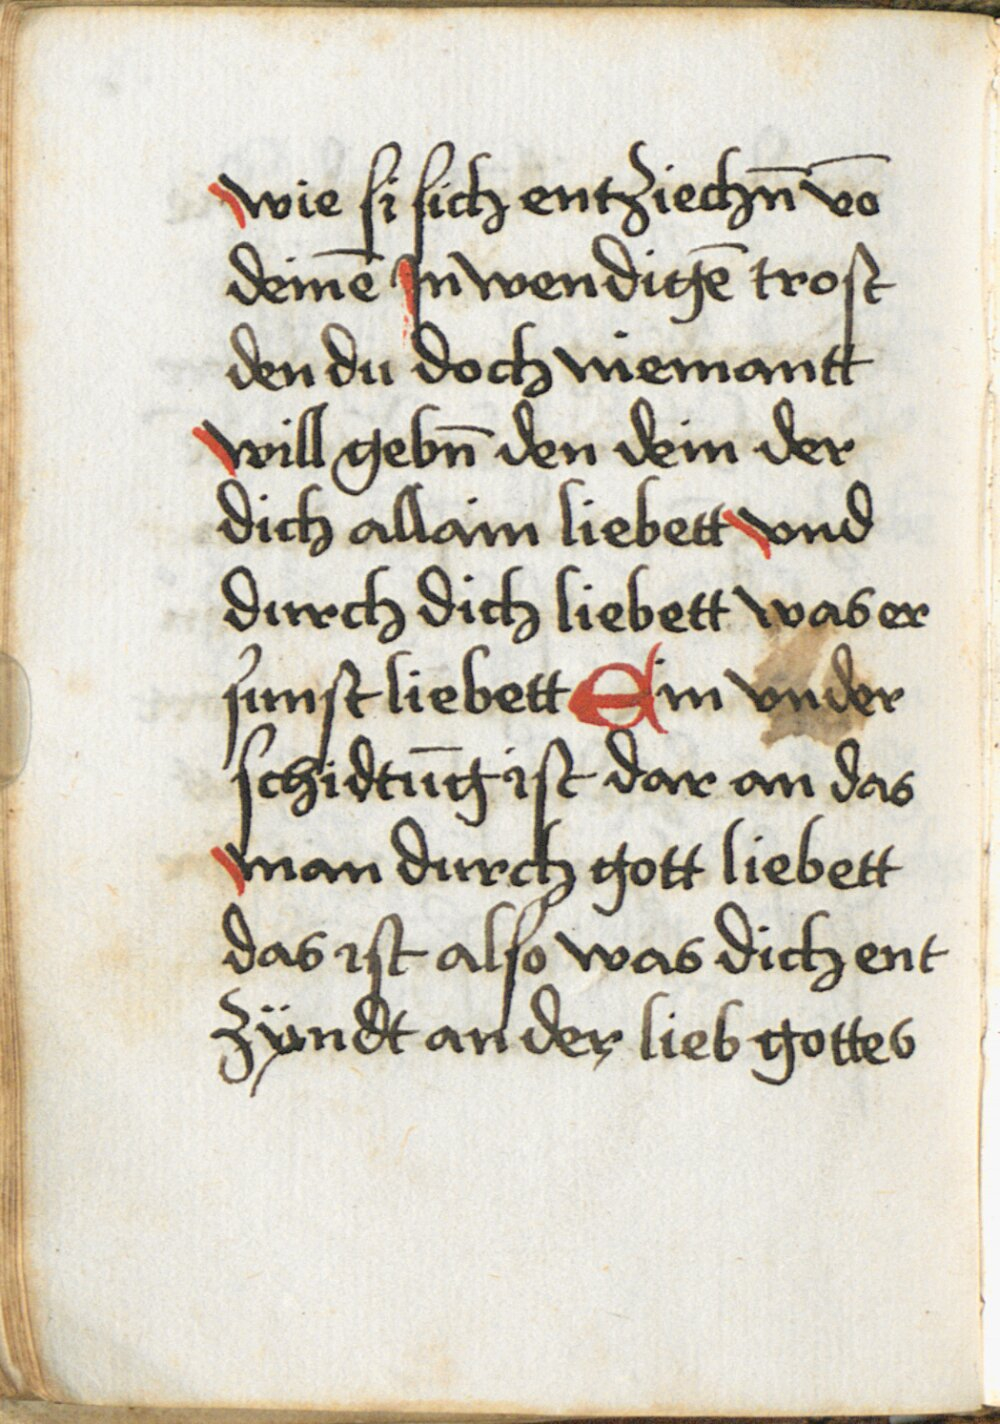 wie si sich entziechn̄ vō
deinē Inwendigē trost
den du doch niemantt
will gebn̄ den dein der
dich allain liebett vnd
durch dich liebett was er
sunst liebett Ein vnder
schidtūg ist dar an das
man durch gott liebett
das ist also was dich ent
zÿndt an der lieb gottes